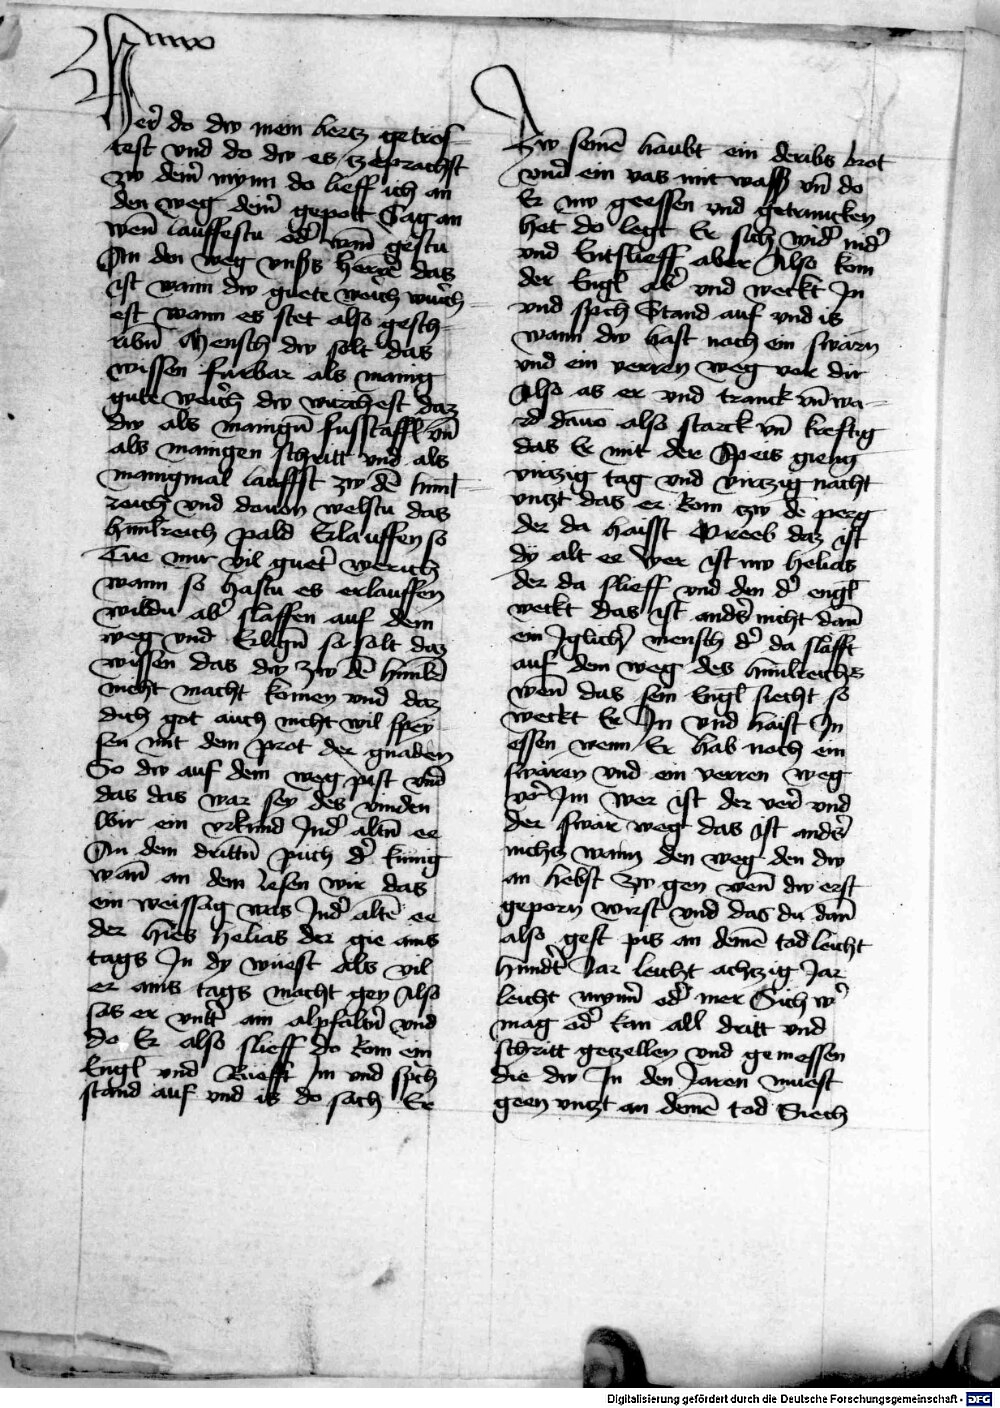 Her do dw mein hertz getros-
test vnd do dw es zeprachst
zw deim mynn do lieff ich an
den weg deiner gepott Sag an
wenn lauffestu oder wann gestu
An den weg vnsers herren das
ist wann dw guete werich würch
est wann es stet also gesch-
ribn Mensch dw solt das
wissen furbar als manig
gute werich dw wurchest daz
dw als manign fusstaffl vnd
als manigen schritt vnd als
manigmal lauffst zw dem himl
reich vnd dauon welstu das
himlreich pald Erlauffen so
Tue nur vil gueter werich
wann so hastu es erlauffen
wildu aber slaffen auf dem
weg vnd so solt daz
wissen das dw zw dem himlr
nicht macht komen vnd daz
dich got auch nicht wil sprey
sen mit dem prot der gnaden
So dw auf dem weg pist vnd
das das war sey des vinden
wir ein vrkund Inder altn ee
An dem drittn puch der kunig
wann an dem lesen wir das
ein weissag was Inder alten ee
der hies helias der gie ains
tags In dy wuest als vil
er ains tags macht gen Also
sas er vnter ain alpfaltern vnd
do Er also slieff do kom ein
Engl vnd Rüefft im vnd spch
stand auf vnd is do sach Er
Zw seinem haubt ein deribs brot
vnd ein vas mit wasser vnd do
Er nw geessen vnd getruncken
het do legt Er sich wider nider
vnd Entslieff aber Also kom
der Engl aber vnd weckt In
vnd spch Stand auf vnd is
wann dw hast noch ein swärn
vnd ein verren weg vor dir
Also as er vnd tranck vnd wa-
rd dauon also starck vnd kreftig
das Er mit der Speis gieng
virczig tag vnd virczig nacht
vntzt das er kom zw dem perg
der da haisst Oreeb daz ist
dy alt ee wer ist nw helias
der da slieff vnd den der engl
weckt das ist anders nicht dann
ein Iglicher mensch der da slafft
auf dem weg des himlreichs
wenn das sein Engl siecht so
weckt Er In vnd haist In
essen wenn Er hab noch ein
swären vnd ein verren weg
vor Im wer ist der verr vnd
der swär weg das ist anders
nichts wann den weg den dw
an hebst zw gen wenn dw erst
geporn wirst vnd das du dann
also gest pis an deinen tod leicht
hundert Iar leicht achtzig Jar
leicht mynner oder mer Sich wer
mag oder kan all dritt vnd
schritt gezellen vnd gemessen
die dw In den Jaren muest
geen vntzt an deinen tod Siech